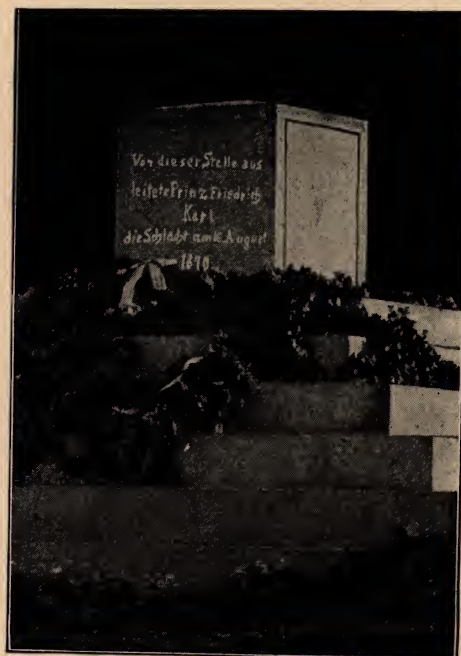 Von dieser Stelle aus
leitete Prinz Friedrich
Karl
die Schlacht am 16. August
1870.